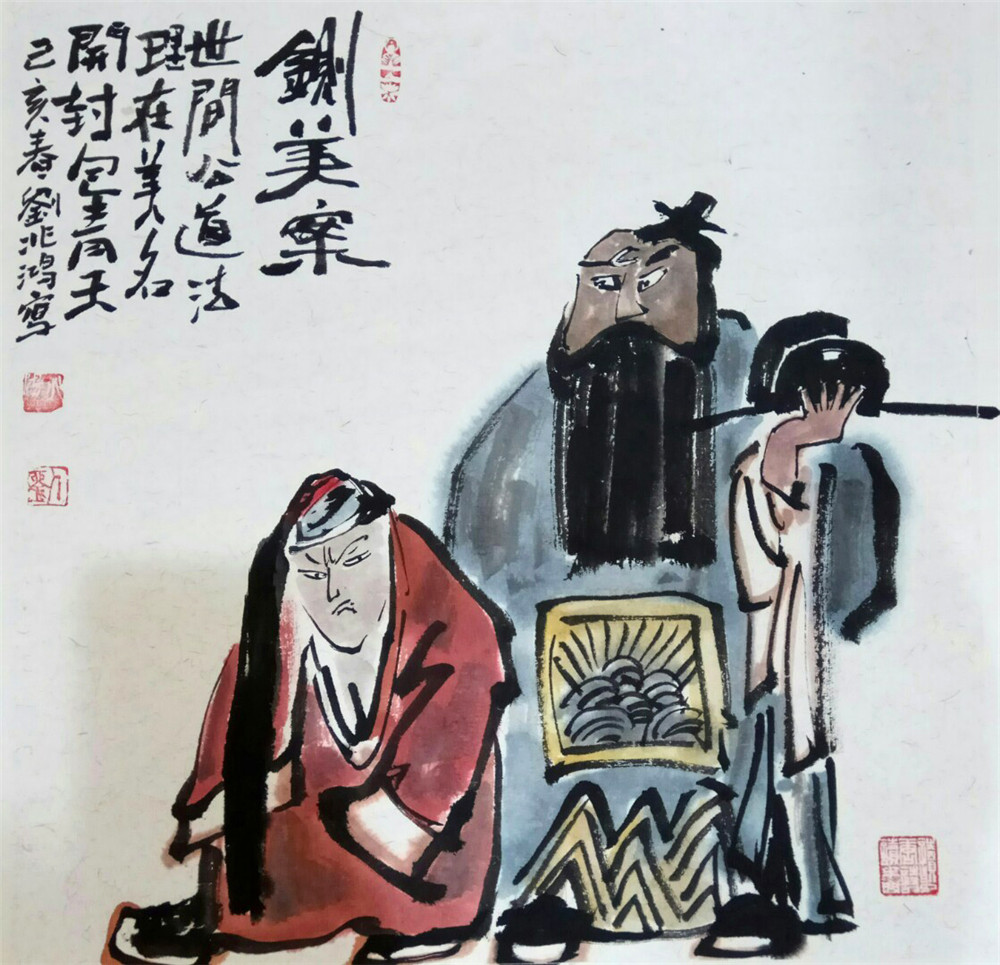 鍘美案
世間公道法
理在美名
開封包青天
己亥春劉兆鴻寫